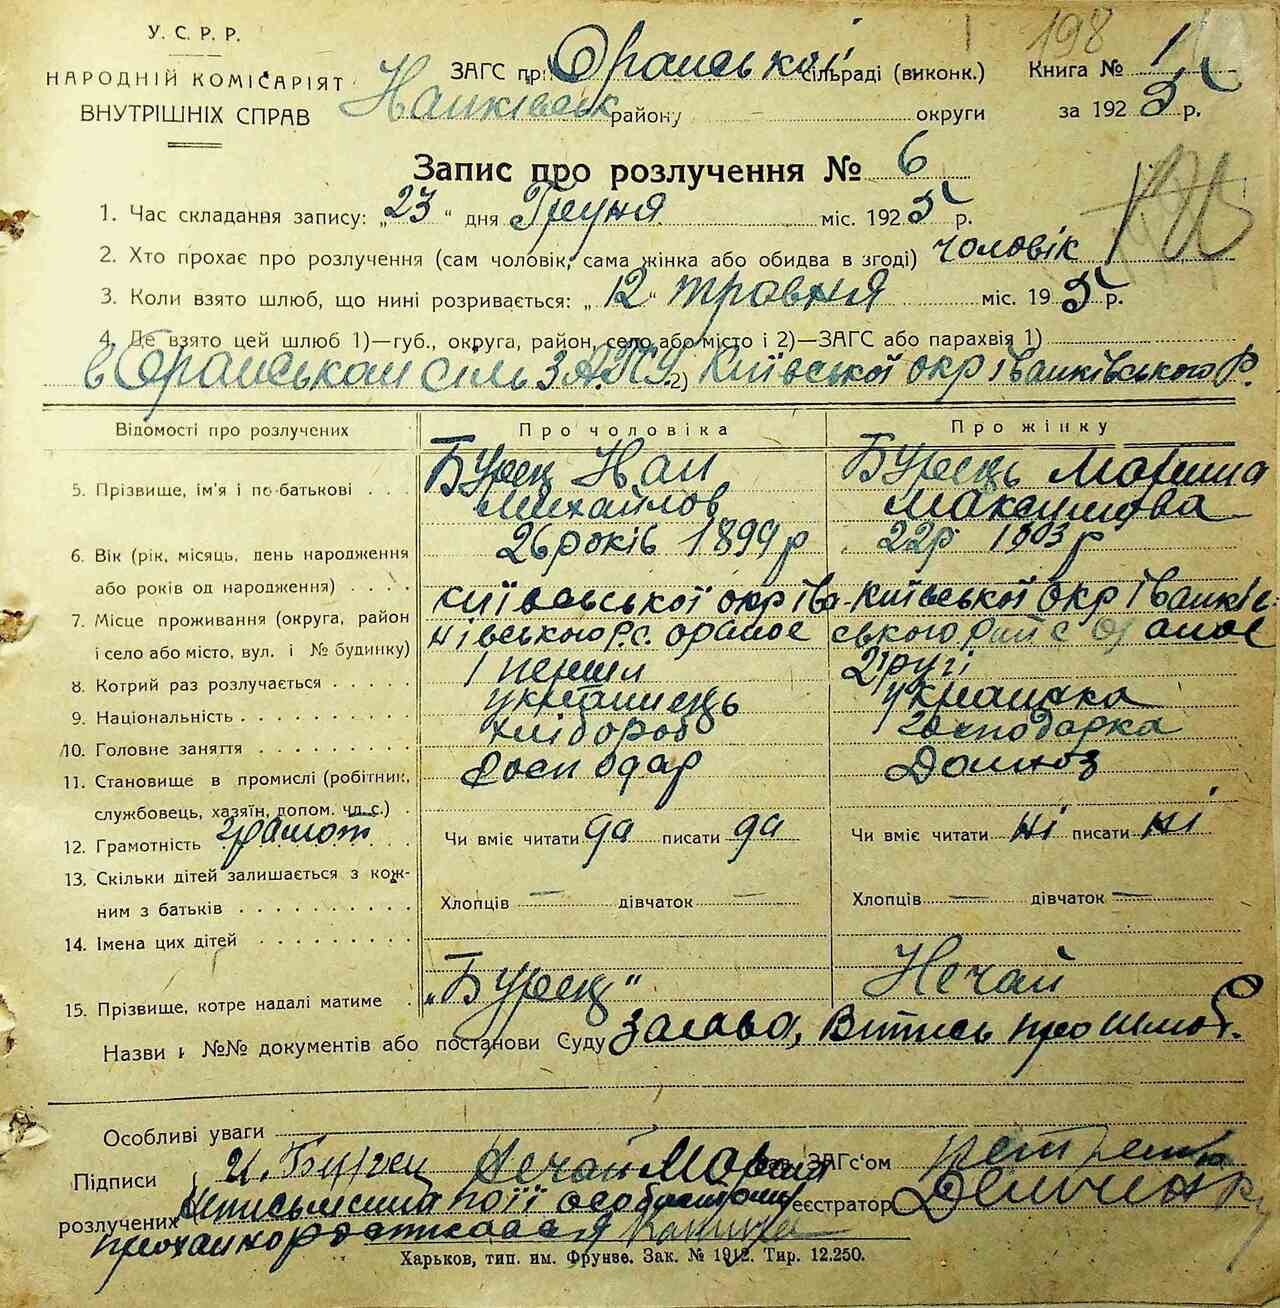 У. С. Р. Р.
НАРОДНІЙ КОМІСАРІЯТ
ВНУТРІШНІХ СПРАВ
198
ЗАГС при Оранській сільраді (виконк.) Книга № 1
району округи за 1925 р.
Запис про розлучення № 6
1. Час складання запису: „23" дня Грудня міс. 1925 р.
2. Хто прохає про розлучення (сам чоловік, сама жінка або обидва в згоді) чоловік
3. Коли взято шлюб, що нині розривається: „12" травня міс. 19 5 р.
4. Де взято цей шлюб 1)—губ., округа, район, село або місто і 2)—ЗАГС або парахвія 1)
в Оранськом сіль ЗАГСу 2) Київської окр Іванківського р.
Відомості про розлучених Про чоловіка Про жінку
5. Прізвище, ім'я і по-батькові Бурец Иван Михайлов Бурець Мариша Максимова
6. Вік (рік, місяць, день народження або років од народження) 26 років 1899 р 22 р 1903 р
7. Місце проживання (округа, район і село або місто, вул. і № будинку) Київської окр Іванківського р. с. Ораное Київської окр Іванківського рай с Ораное
8. Котрий раз розлучається 1 перший 2 другі
9. Національність українець українка
10. Головне заняття хлібороб господарка
11. Становище в промислі (робітник, службовець, хазяїн, допом. чл. с.) господар Домхоз
12. Грамотність грамот Чи вміє читати да писати да Чи вміє читати ні писати ні
13. Скільки дітей залишається з кожним з батьків Хлопців — дівчаток — Хлопців — дівчаток —
14. Імена цих дітей
15. Прізвище, котре надалі матиме „Бурец" Нечай
Назви і №№ документів або постанови Суду Заява, Витись про шлюб.
Особливі уваги
Підписи И. Бурец Нечай Мариша ЗАГс'ом
розлучених Неписьменна по її особистому реєстратор
проханню росписався
Харьков, тип. им. Фрунзе. Зак. № 1912. Тир. 12.250.